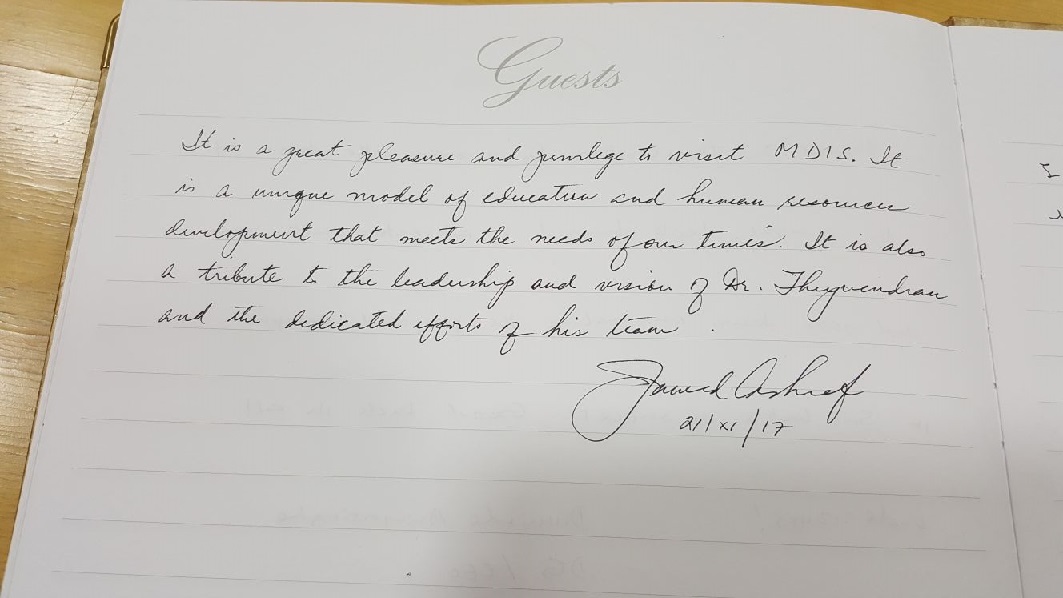 Guests
It is a great pleasure and privilege to visit MDIS. It
is a unique model of education and human resources
development that meets the needs of our times. It is also
a tribute to the leadership and vision of Dr. Theyvendran
and the dedicated efforts of his team.
Jawed Ashraf
21/xi/17